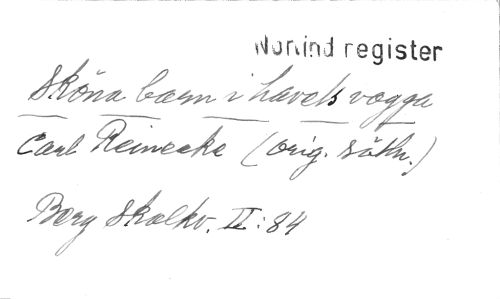 Norlind register
Sköna barn i havets vagga
Carl Reinecke (orig. sättn.)
Berg Skolkv. II: 84